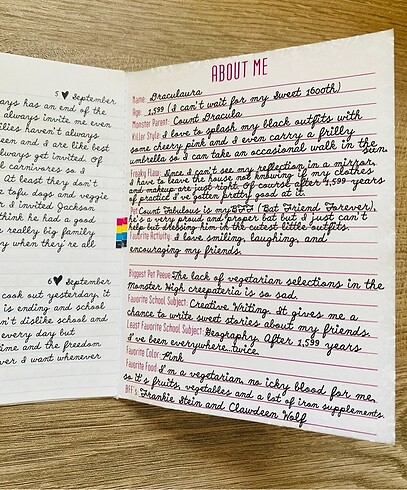 5 ♥ September
ays has an end of the
always invite me even
ilies haven't always
een and I are like best
always get invited. Of
carnivores so I
At least they don't
tofu dogs and veggie
I invited Jackson
think he had a good
really big family
y when they're all
6 ♥ September
cook out yesterday, it
is ending and school
n't dislike school and
every day but
ime and the freedom
ver I want whenever
ABOUT ME
Name: Draculaura
Age: 1,599 (I can't wait for my Sweet 1600th)
Monster Parent: Count Dracula
Killer Style: I love to splash my black outfits with
some cheery pink and I even carry a frilly
umbrella so I can take an occasional walk in the sun.
Freaky Flaw: Since I can't see my reflection in a mirror,
I have to leave the house not knowing if my clothes
and makeup are just right. Of course after 1,599 years
of practice I've gotten pretty good at it.
Pet: Count Fabulous is my BFF (Bat Friend Forever).
he's a very proud and proper bat but I just can't
help but dressing him in the cutest little outfits.
Favorite Activity: I love smiling, laughing, and
encouraging my friends.
Biggest Pet Peeve: The lack of vegetarian selections in the
Monster High creepateria is so sad.
Favorite School Subject: Creative Writing. It gives me a
chance to write sweet stories about my friends.
Least Favorite School Subject: Geography. After 1,599 years
I've been everywhere...twice.
Favorite Color: Pink
Favorite Food: I'm a vegetarian, no icky blood for me,
so it's fruits, vegetables and a lot of iron supplements.
BFF's: Frankie Stein and Clawdeen Wolf